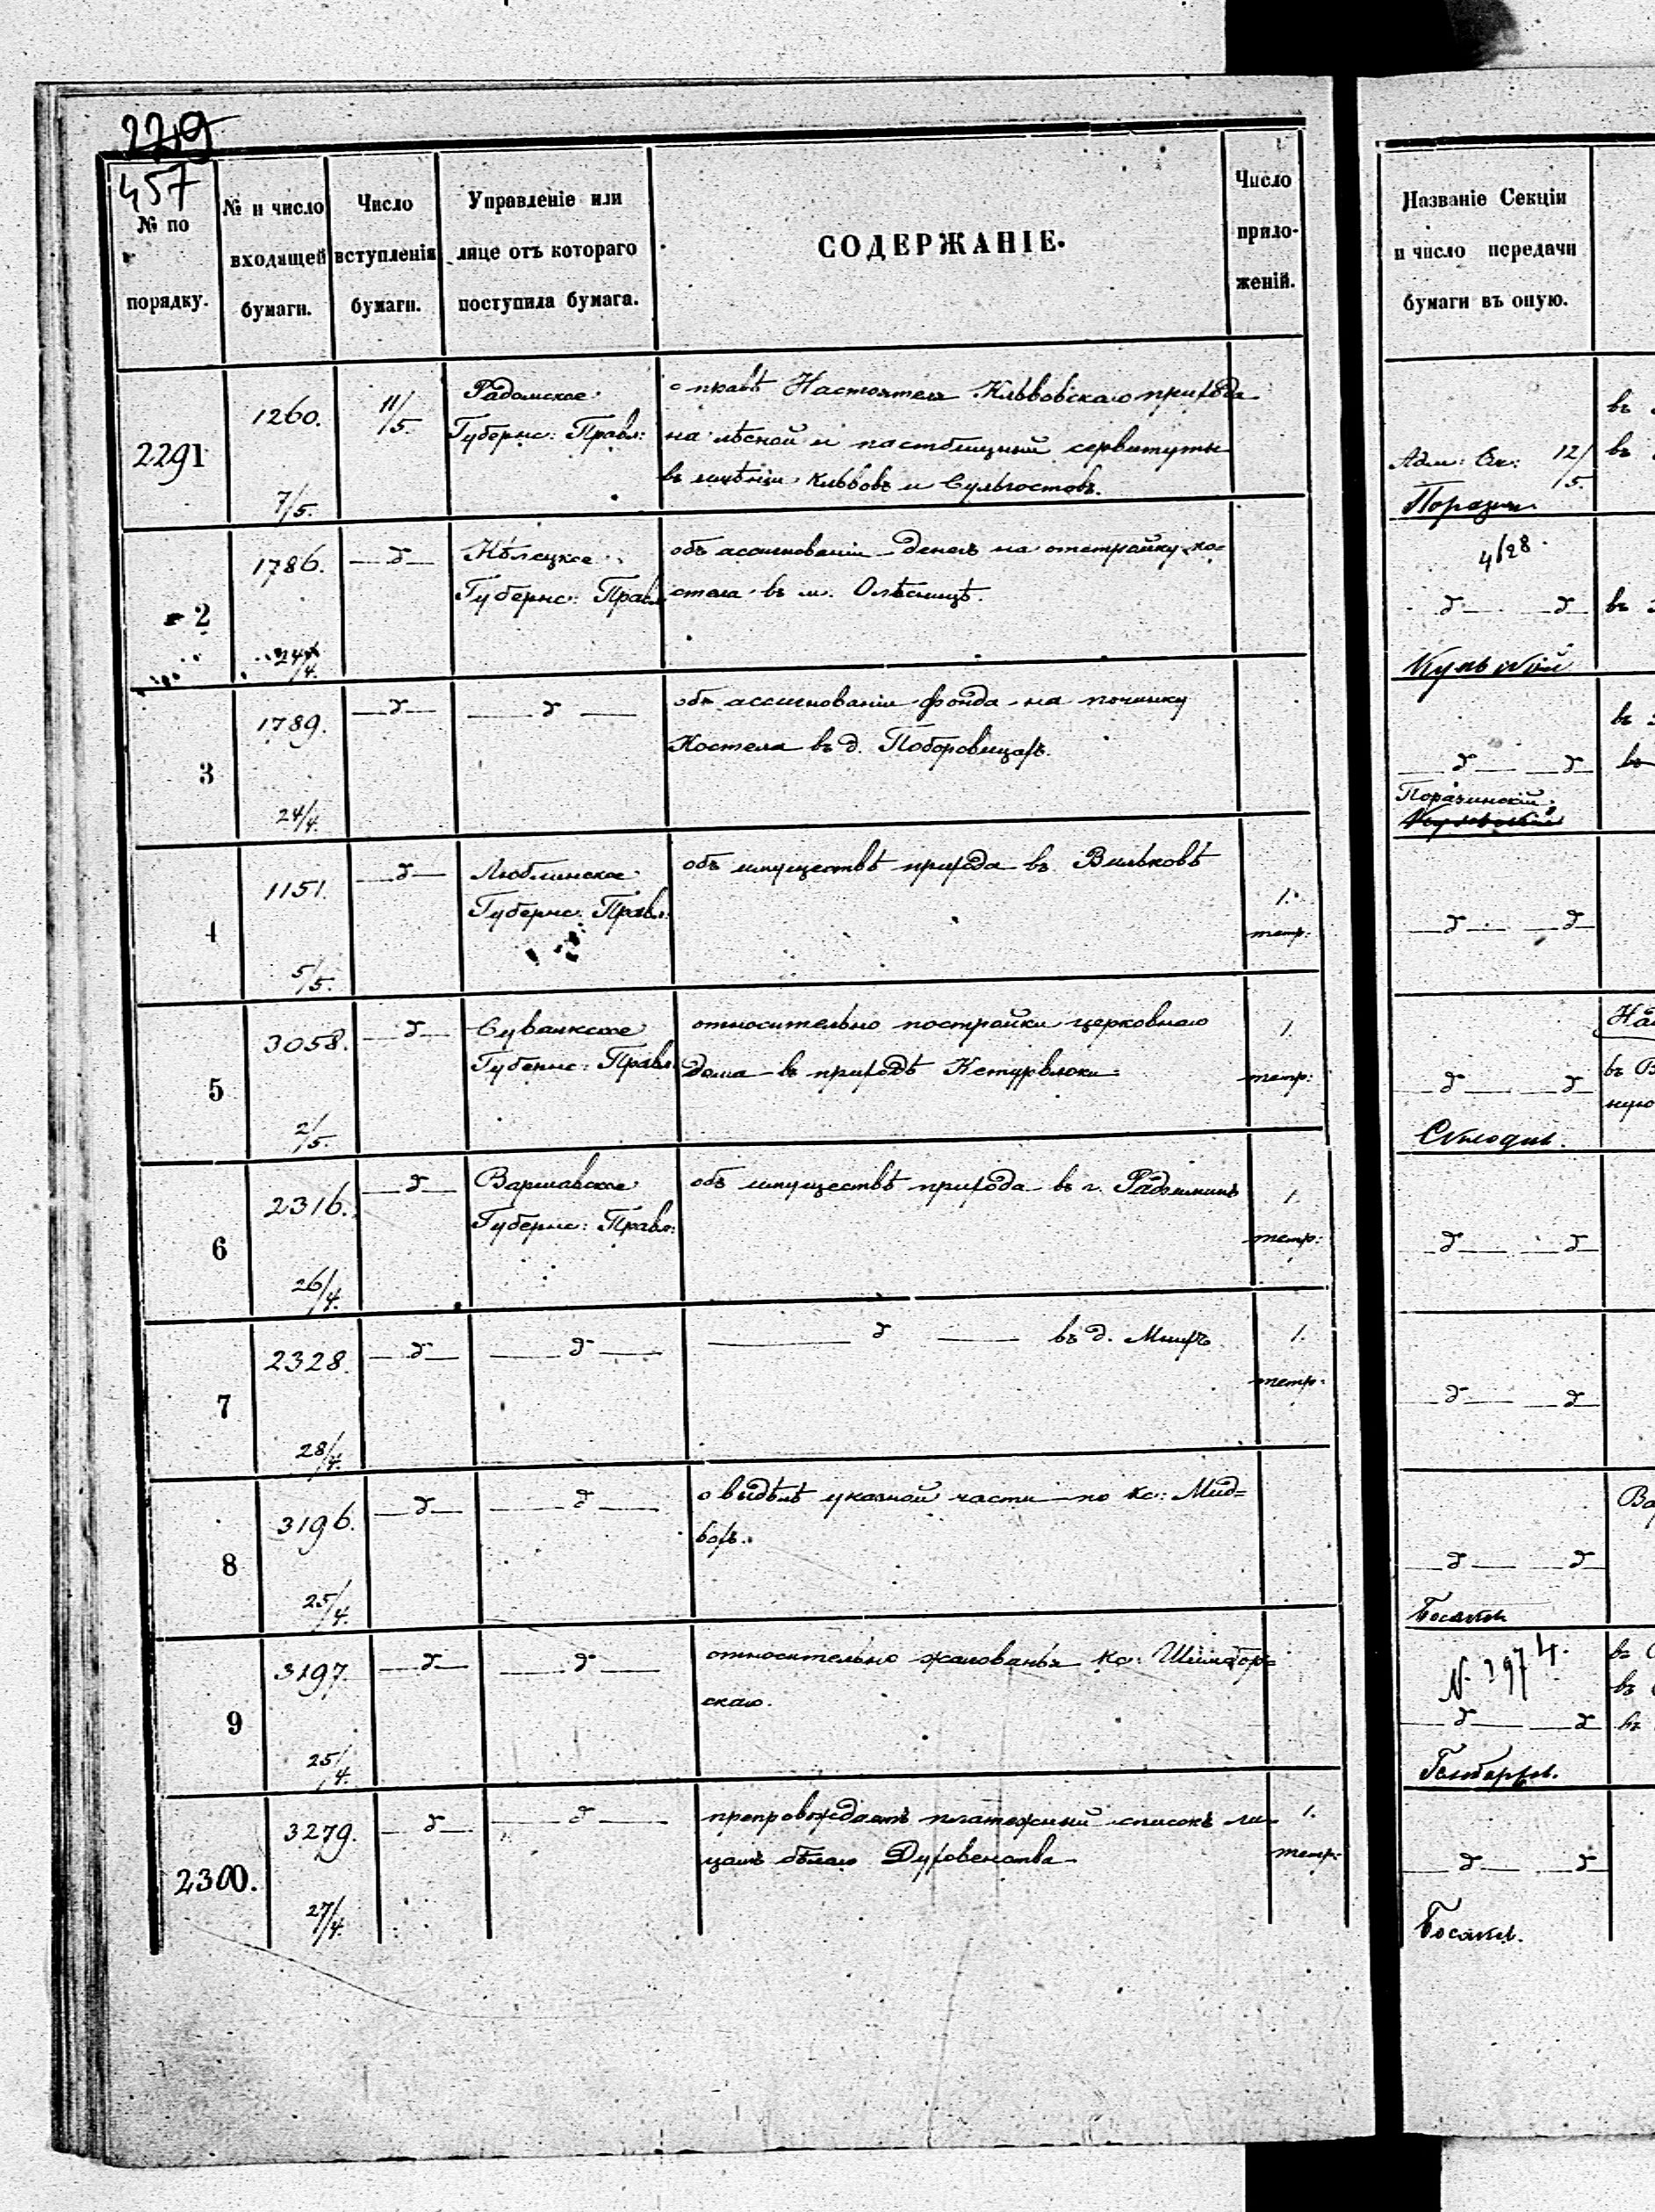 229
457
№ по порядку.
№ и число входящей бумаги.
Число вступленія бумаги.
Управленіе или лице отъ котораго поступила бумага.
СОДЕРЖАНІЕ.
Число прило-женій.
Названіе Секціи и число передачи бумаги въ оную.
2291
1260.
7/5.
11/5.
Радомское
Губернс: Правл:
о правѣ Настоятеля Клѣвовскаго прихода
на лѣсной и пастбищный сервитуты
въ имѣніи Клѣвовъ и Сульгостовъ.
Адм: Ск: 12/5.
въ
въ
2
1786.
24/4.
— д —
Кѣлецкое
Губернс: Правл
объ ассигнованіи денегъ на отстройку ко=
стела въ м. Олѣсницѣ.
4/28.
— д — — д
въ
3
1789.
24/4.
— д —
— д —
объ ассигнованіи фонда на починку
Костела въ д. Поборовицахъ.
— д — — д
Порачинскій
въ
въ
4
1151.
5/5.
— д —
Люблинское
Губернс: Правл:
объ имуществѣ прихода въ Вильковѣ
1.
тетр:
— д — — д
5
3058.
2/5.
— д —
Сувалкское
Губернс: Правл:
относительно постройки церковнаго
дома въ приходѣ Кетурвлоки
1.
тетр:
— д — — д
въ В
ную
6
2316.
26/4.
— д —
Варшавское
Губернс: Правл:
объ имуществѣ прихода въ г. Радзыминѣ
1.
тетр:
— д — — д
7
2328.
28/4.
— д —
— д —
— д — въ д.
1.
тетр:
— д — — д
8
3196.
25/4.
— д —
— д —
о выдѣлѣ указной части по кс:
— д — — д
9
3197.
25/4.
— д —
— д —
относительно жалованья Кс:
скаго.
— д — — д
2300.
3279.
27/4.
— д —
— д —
препровождаетъ платежный списокъ ли=
цамъ бѣлаго Духовенства
1.
тетр:
— д — — д